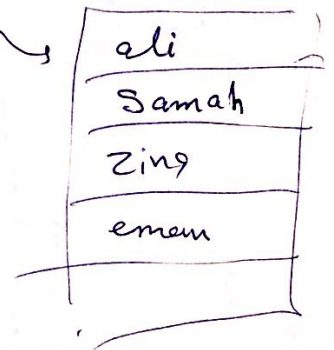 ali
Samah
Zina
emem